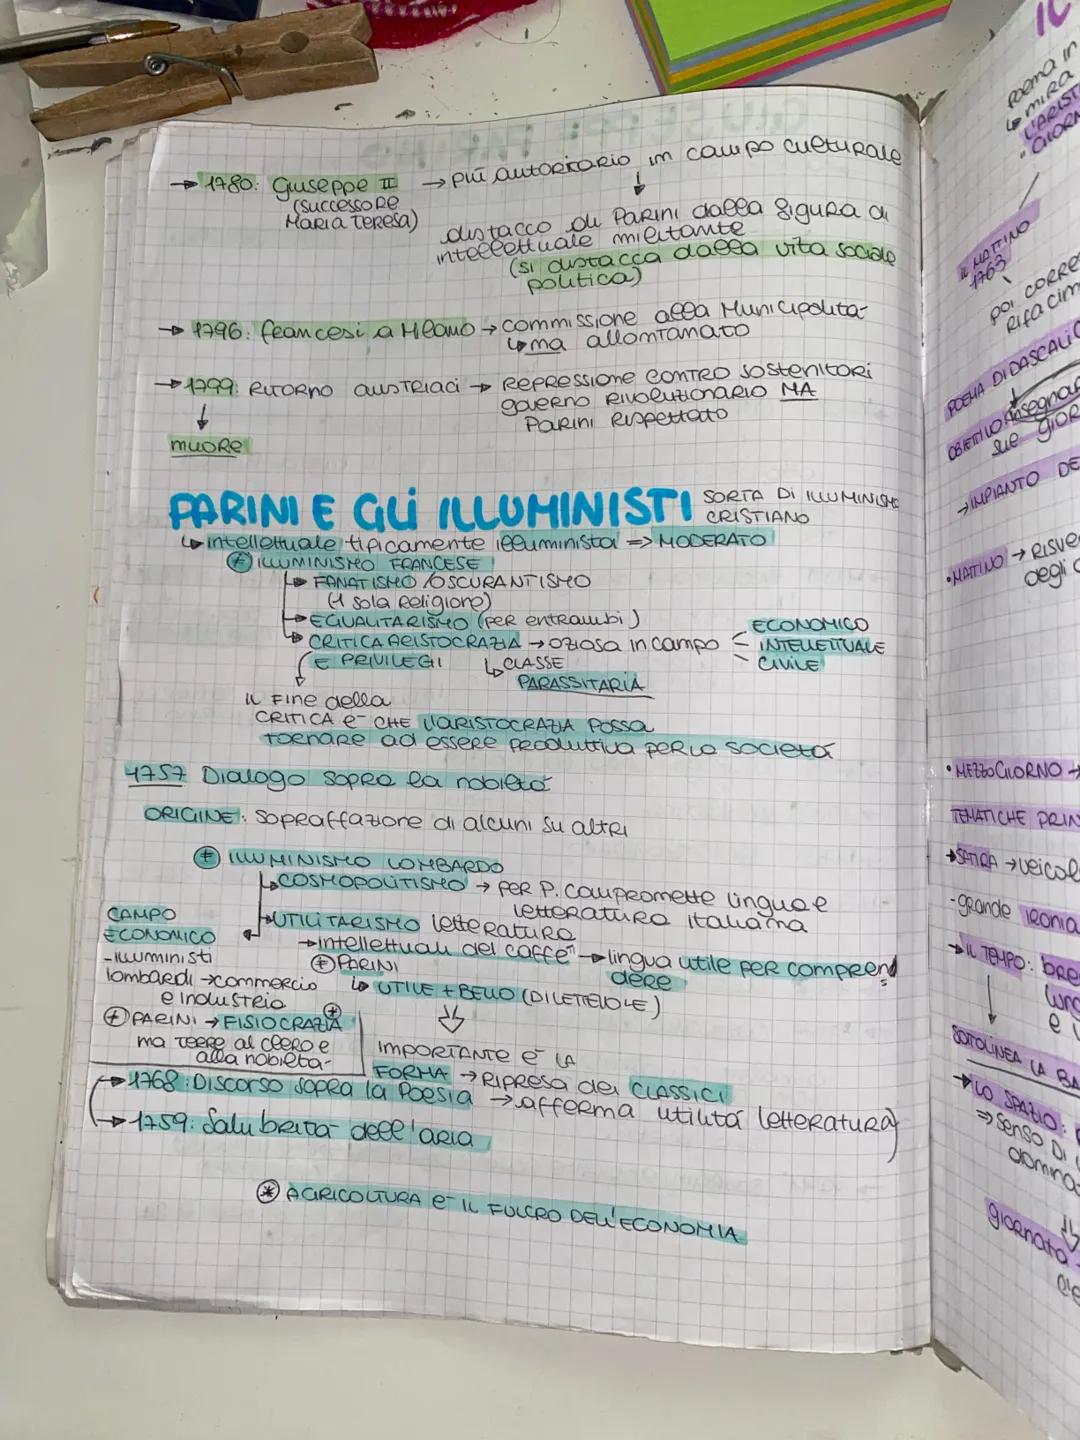 → 1780: Giuseppe II → più autoritario in campo culturale
(successore
Maria Teresa)
↓
distacco di Parini dalla figura di
intellettuale militante
(si distacca dalla vita sociale
politica)
→ 1796: francesi a Milano → commissione alla Municipalità
↳ ma allontanato
→ 1799: RITORNO AUSTRIACI → REPRESSIONE CONTRO SOSTENITORI
governo RIVOLUZIONARIO MA
PARINI Rispettato
↓
muore
PARINI E GLI ILLUMINISTI SORTA DI ILLUMINISMO
CRISTIANO
↳ intellettuale tipicamente illuminista => MODERATO
≠ ILLUMINISMO FRANCESE
↳ FANATISMO/OSCURANTISMO
(1 sola Religione)
→ EGUALITARISMO (per entrambi)
↳ CRITICA ARISTOCRAZIA → oziosa in campo
E PRIVILEGI
ECONOMICO
INTELLETTUALE
CIVILE
↳ CLASSE
PARASSITARIA
IL FINE della
CRITICA è CHE L'ARISTOCRAZIA POSSA
TORNARE ad essere produttiva per la società
1757 Dialogo sopra la nobiltà
ORIGINE: Sopraffazione di alcuni su altri
≠ ILLUMINISMO LOMBARDO
↳ COSMOPOLITISMO → per P. compromette lingua e
letteratura italiana
→ UTILITARISMO letteratura
→ intellettuali del caffè → lingua utile per compren
dere
≠ PARINI
↳ UTILE + BELLO (DILETTEVOLE)
⇓
IMPORTANTE è LA
FORMA → RIPRESA dei CLASSICI
CAMPO
ECONOMICO
- illuministi
lombardi → commercio
e industria
≠ PARINI → FISIOCRAZIA
ma terre al clero e
alla nobiltà
→ 1768: DISCORSO sopra la Poesia → afferma utilità letteratura
→ 1759: Salubrità dell'aria
* AGRICOLTURA è IL FULCRO DELL'ECONOMIA
poema in
↳ mira
L'ARIST
IL MATTINO
1763
POI CORRE
Rifacim
POEMA DIDASCALIC
OBIETTIVO insegnar
sue gior
→ IMPIANTO DE
• MATTINO → RISVE
degli
• MEZZOGIORNO →
TEMATICHE PRIN
→ SATIRA → veicol
- grande ironia
→ IL TEMPO: bre
lung
e
SOTTOLINEA LA BA
→ LO SPAZIO:
=> senso DI
domina
giornata